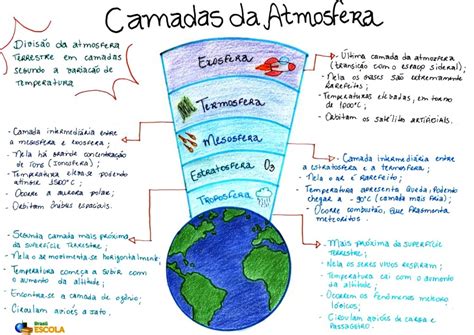 Camadas da Atmosfera
Divisão da atmosfera
terrestre em camadas
segundo a variação de
temperatura
Exosfera
Termosfera
Mesosfera
Estratosfera O₃
Troposfera
- Última camada da atmosfera
(transição com o espaço sideral);
- Nela os gases são extremamente
rarefeitos;
- Temperaturas elevadas, em torno
de 1000°C;
- Orbitam os satélites artificiais.
- Camada intermediária entre
a mesosfera e exosfera;
- Nela há grande concentração
de íons (Ionosfera);
- Temperatura eleva-se podendo
atingir 1500°C;
- Ocorre a aurora polar;
- Orbitam ônibus espaciais.
- Camada intermediária entre
a estratosfera e a termosfera;
- Nela o ar é rarefeito;
- Temperatura apresenta queda, podendo
chegar a -90°C (camada mais fria);
- Ocorre combustão, que fragmenta
meteoritos.
- Segunda camada mais próxima
da superfície terrestre;
- Nela o ar movimenta-se horizontalmente;
- Temperatura começa a subir com
o aumento da altitude;
- Encontra-se a camada de ozônio;
- Circulam aviões a jato.
- Mais próxima da superfície
terrestre;
- Nela os seres vivos respiram;
- Temperatura cai com o aumento
da altitude;
- Ocorrem os fenômenos meteoro-
lógicos;
- Circulam aviões de carga e
passageiro.
Brasil
ESCOLA